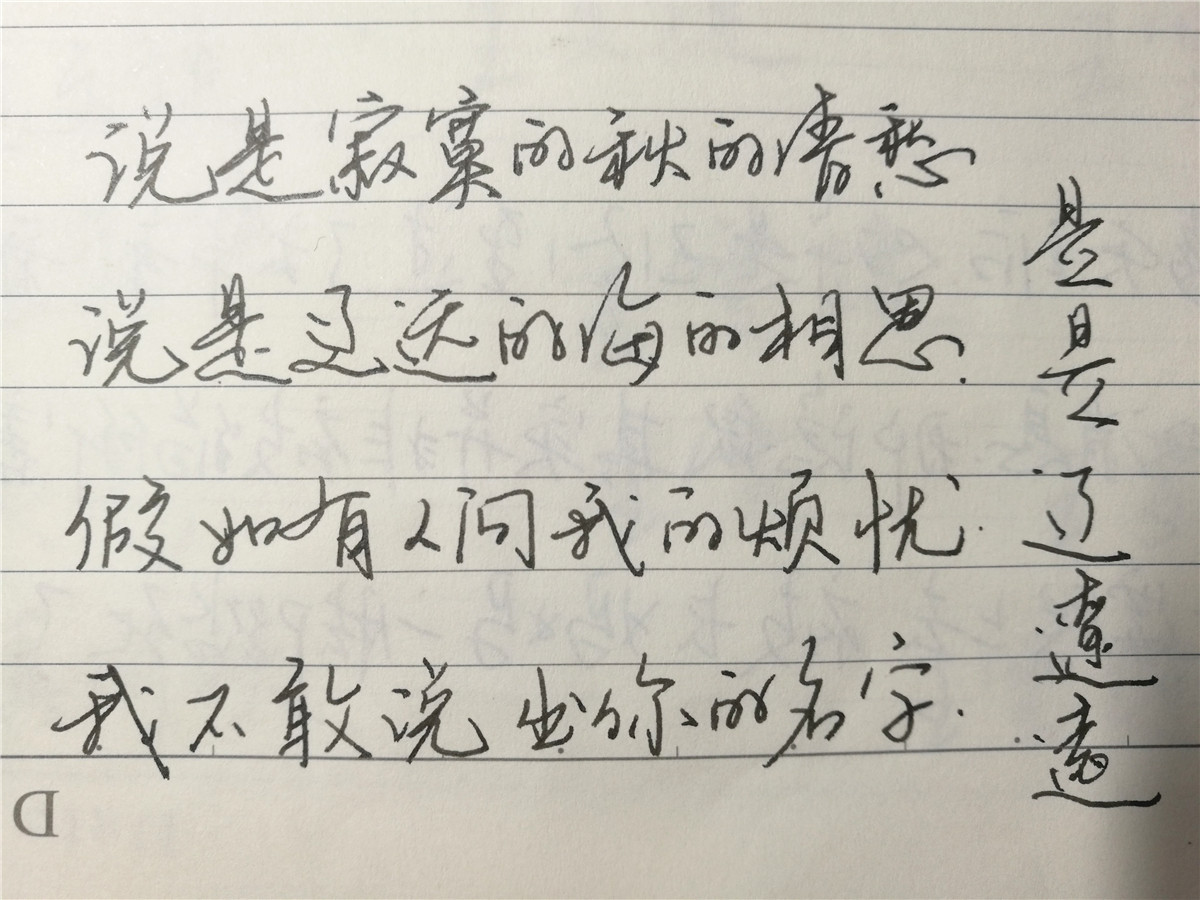 说是寂寞的秋的清愁
说是辽远的海的相思.
假如有人问我的烦忧.
我不敢说出你的名字.
是是辽遼遼
D